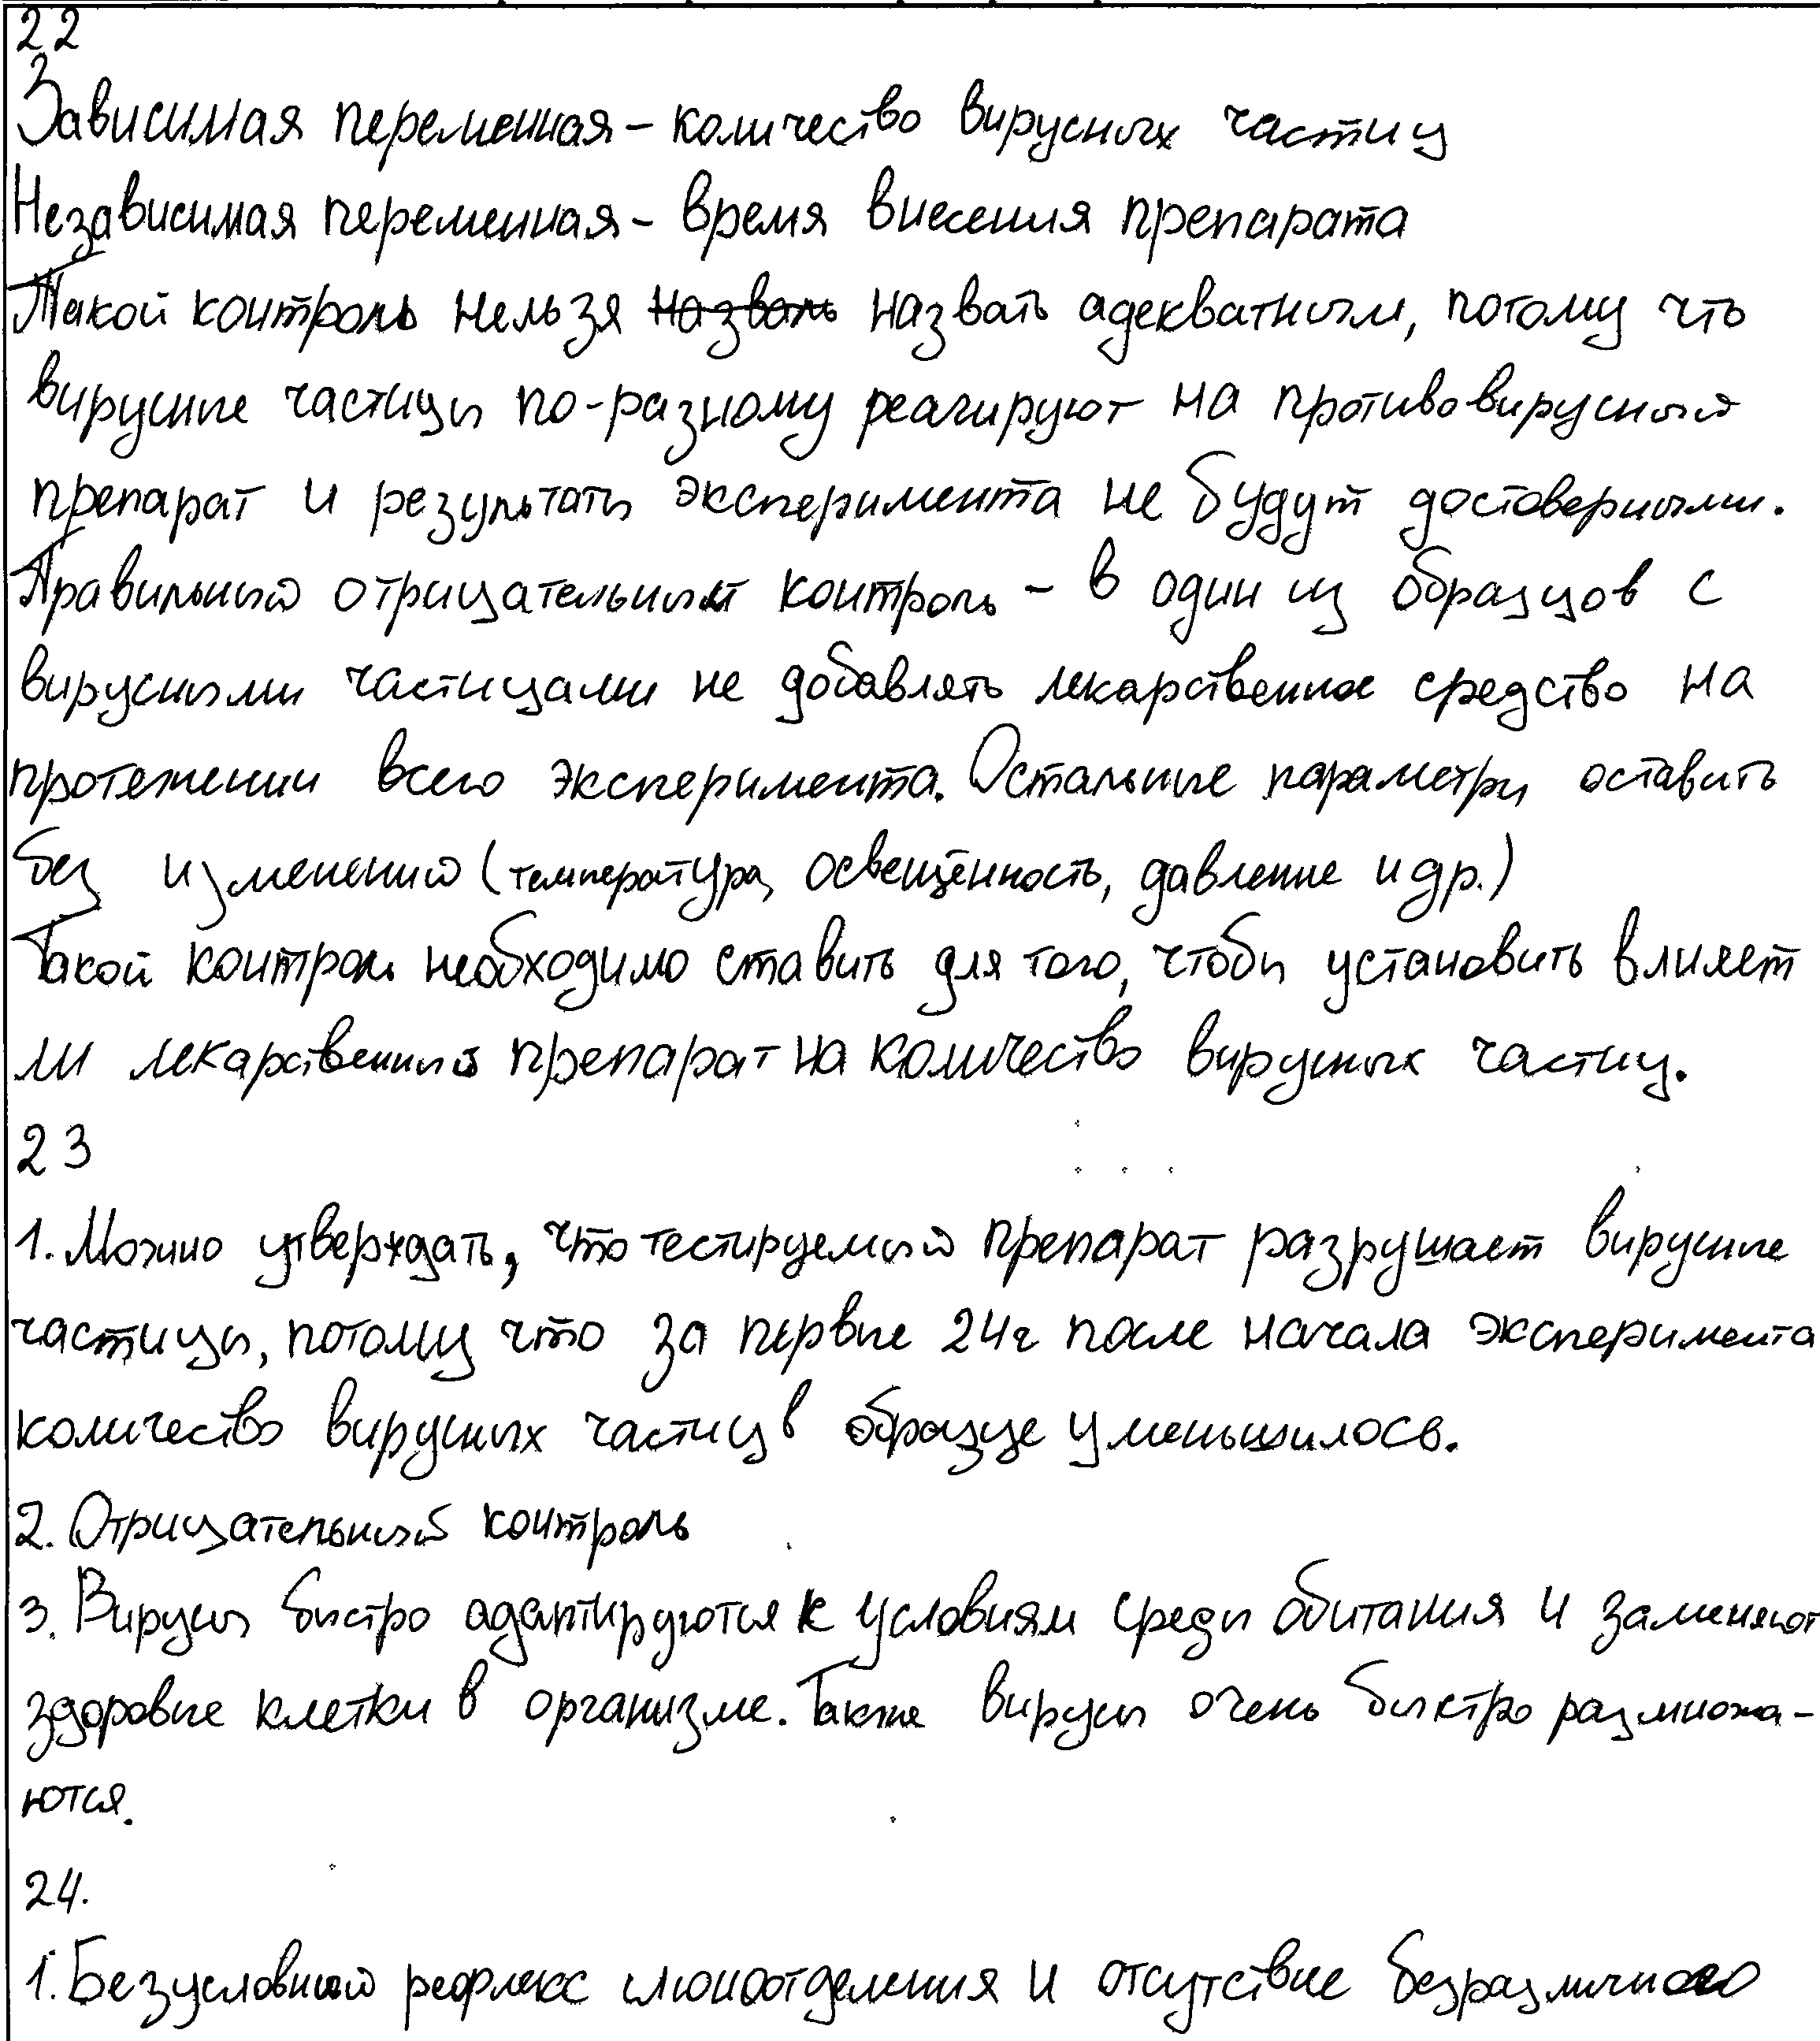 22
Зависимая переменная – количество вирусных частиц
Независимая переменная – время внесения препарата
Такой контроль нельзя назвать назвать адекватным, потому что
вирусные частицы по-разному реагируют на противовирусный
препарат и результаты эксперимента не будут достоверными.
Правильный отрицательный контроль – в один из образцов с
вирусными частицами не добавлять лекарственное средство на
протежении всего эксперимента. Остальные параметры оставить
без изменений (температура, освещённость, давление и др.)
Такой контроль необходимо ставить для того, чтобы установить влияет
ли лекарственный препарат на количество вирусных частиц.
23
1. Можно утверждать, что тестируемый препарат разрушает вирусные
частицы, потому что за первые 24ч после начала эксперимента
количество вирусных частиц в образце уменьшилось.
2. Отрицательный контроль
3. Вирусы быстро адаптируются к условиям среды обитания и заменяют
здоровые клетки в организме. Также вирусы очень быстро размножа-
ются.
24.
1. Безусловный рефлекс слюноотделения и отсутствие безразличного